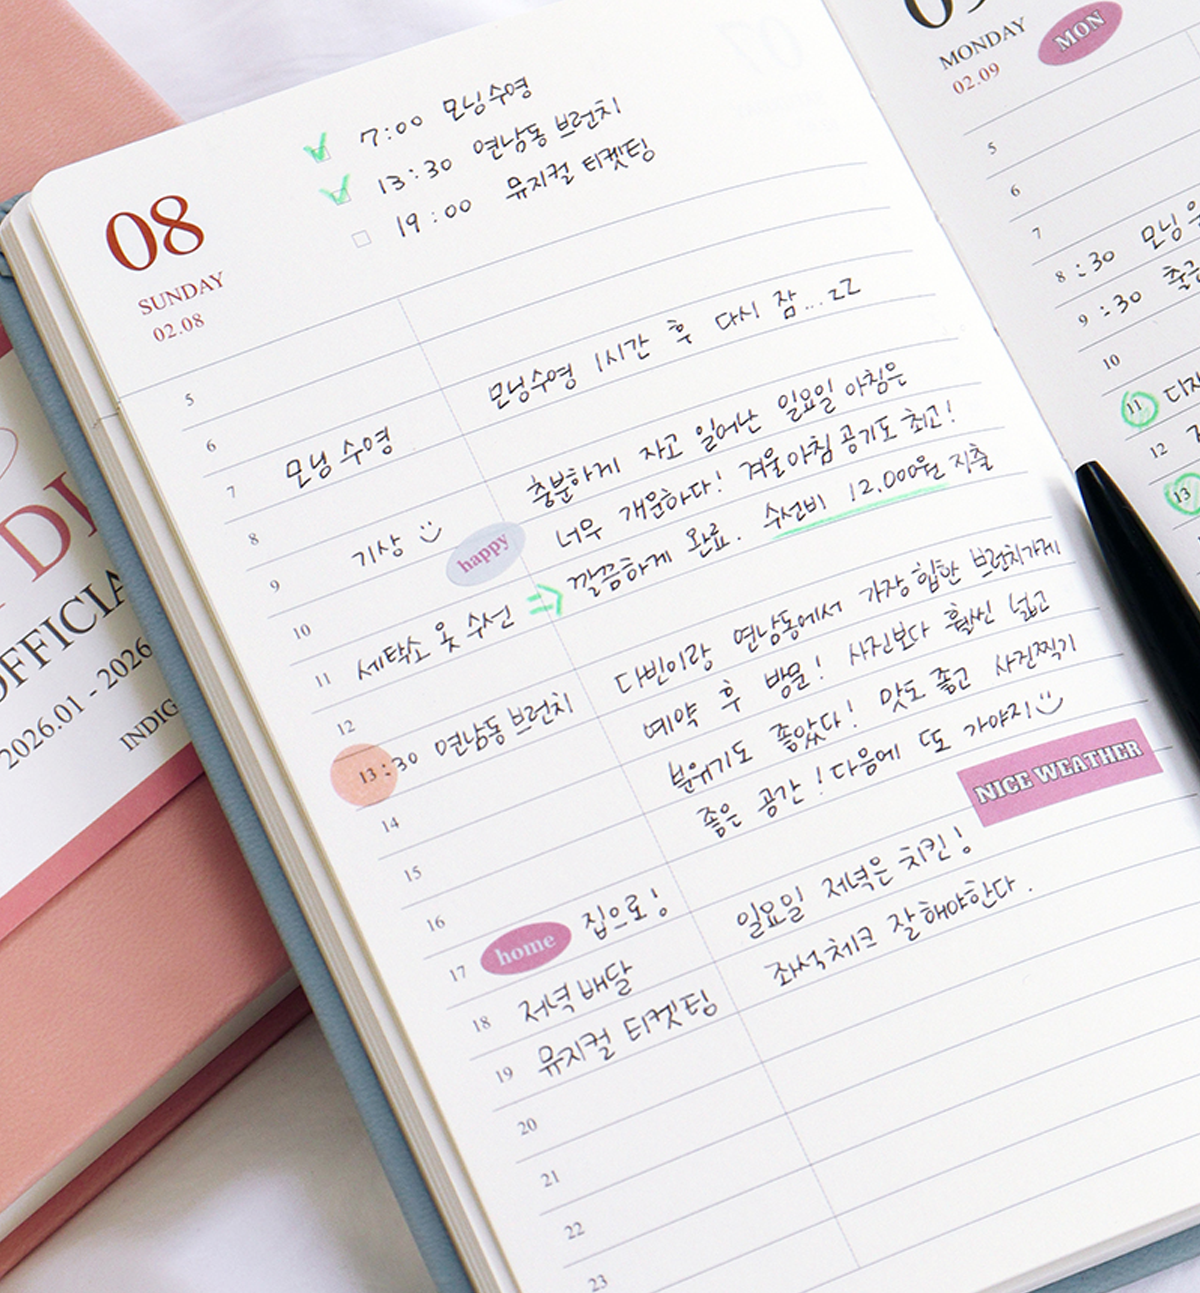 08
SUNDAY
02.08
7:00 모닝수영
13:30 연남동 브런치
19:00 뮤지컬 티켓팅
5
6
7 모닝 수영
8
9 기상
happy
10
11 세탁소 옷 수선
12
13:30 연남동 브런치
14
15
16
17 home 집으로!
18 저녁 배달
19 뮤지컬 티켓팅
20
21
22
23
모닝수영 1시간 후 다시 잠...zZ
충분하게 자고 일어난 일요일 아침은
너무 개운하다! 겨울아침 공기도 최고!
깔끔하게 완료. 수선비 12,000원 지출
다빈이랑 연남동에서 가장 힙한 브런치가게
예약 후 방문! 사진보다 훨씬 넓고
분위기도 좋았다! 맛도 좋고 사진찍기
좋은 공간! 다음에 또 가야지
NICE WEATHER
일요일 저녁은 치킨!
좌석체크 잘해야한다.
MONDAY
02.09
MON
5
6
7
8:30 모닝
9:30
10
11
12
13
2026.01 - 2026